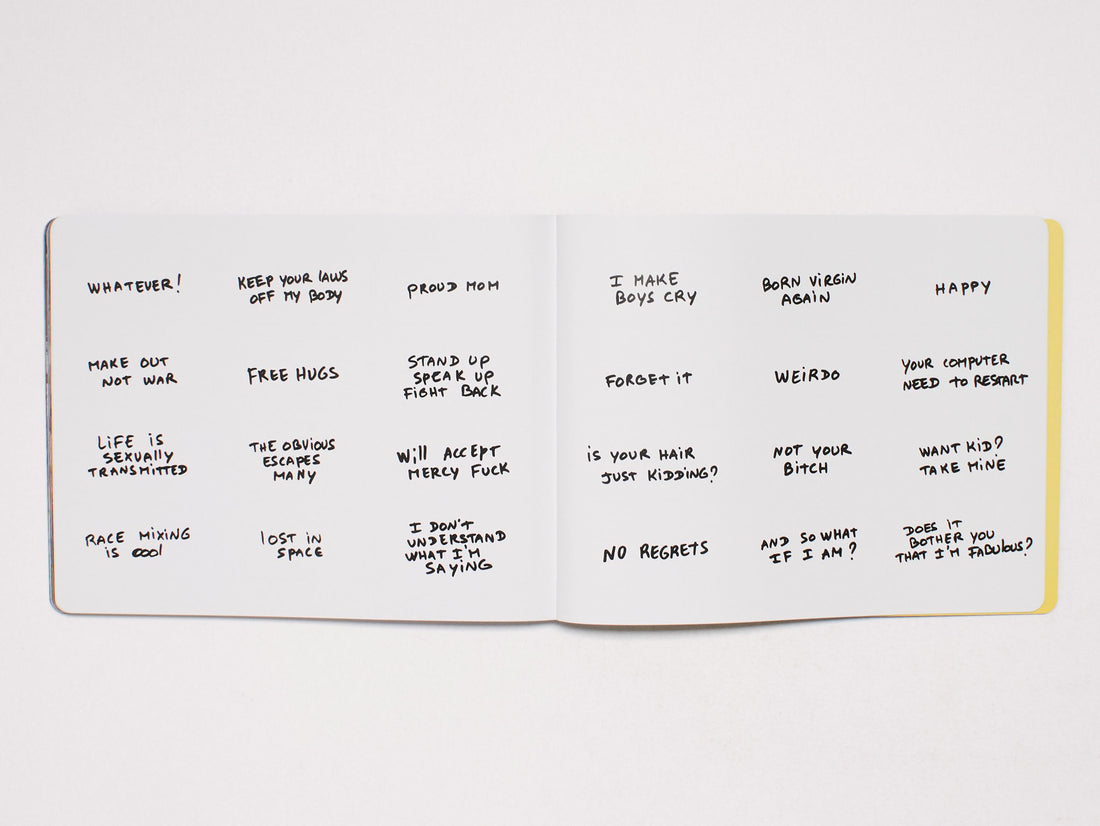 WHATEVER!
KEEP YOUR LAWS
OFF MY BODY
PROUD MOM
MAKE OUT
NOT WAR
FREE HUGS
STAND UP
SPEAK UP
FIGHT BACK
LIFE IS
SEXUALLY
TRANSMITTED
THE OBVIOUS
ESCAPES
MANY
WILL ACCEPT
MERCY FUCK
RACE MIXING
IS COOL
LOST IN
SPACE
I DON'T
UNDERSTAND
WHAT I'M
SAYING
I MAKE
BOYS CRY
BORN VIRGIN
AGAIN
HAPPY
FORGET IT
WEIRDO
YOUR COMPUTER
NEED TO RESTART
IS YOUR HAIR
JUST KIDDING?
NOT YOUR
BITCH
WANT KID?
TAKE MINE
NO REGRETS
AND SO WHAT
IF I AM?
DOES IT
BOTHER YOU
THAT I'M FABULOUS?